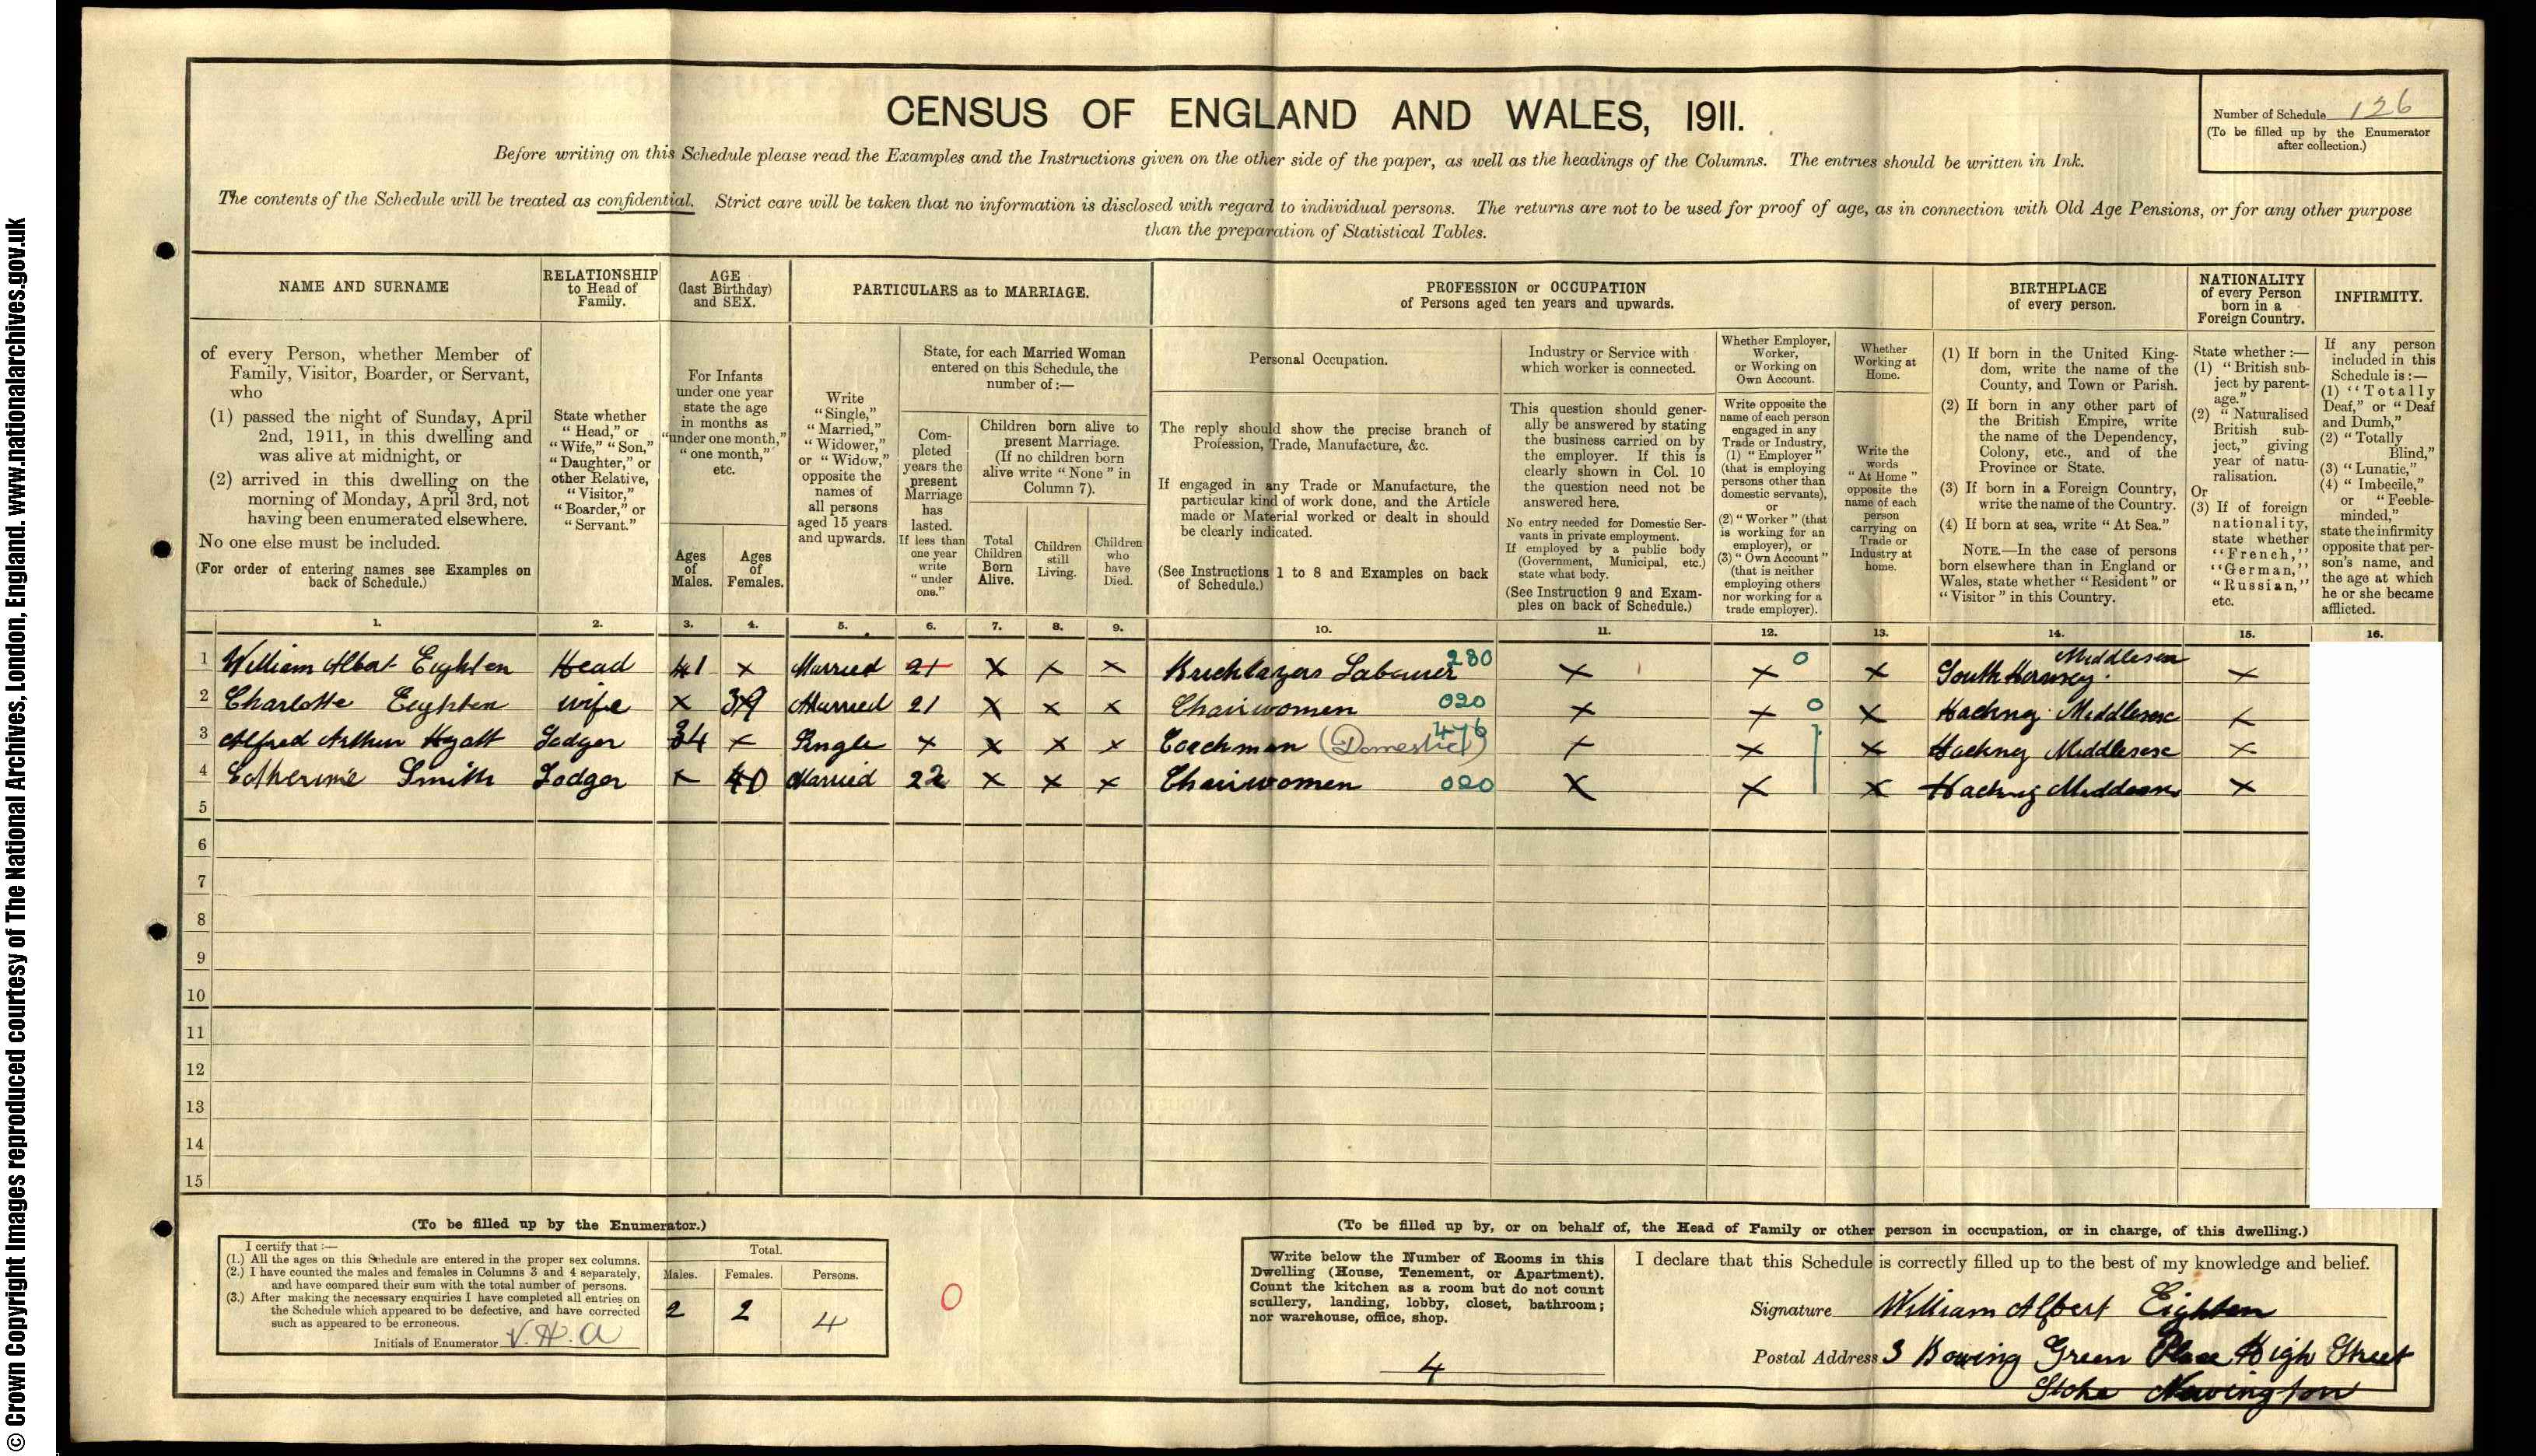 © Crown Copyright Images reproduced courtesy of The National Archives, London, England. www.nationalarchives.gov.uk
CENSUS OF ENGLAND AND WALES, 1911.
Number of Schedule 126
(To be filled up by the Enumerator
after collection.)
Before writing on this Schedule please read the Examples and the Instructions given on the other side of the paper, as well as the headings of the Columns. The entries should be written in Ink.
The contents of the Schedule will be treated as confidential. Strict care will be taken that no information is disclosed with regard to individual persons. The returns are not to be used for proof of age, as in connection with Old Age Pensions, or for any other purpose
than the preparation of Statistical Tables.
NAME AND SURNAME
of every Person, whether Member of
Family, Visitor, Boarder, or Servant,
who
(1) passed the night of Sunday, April
2nd, 1911, in this dwelling and
was alive at midnight, or
(2) arrived in this dwelling on the
morning of Monday, April 3rd, not
having been enumerated elsewhere.
No one else must be included.
(For order of entering names see Examples on
back of Schedule.)
RELATIONSHIP
to Head of
Family.
State whether
"Head," or
"Wife," "Son,"
"Daughter," or
other Relative,
"Visitor,"
"Boarder," or
"Servant."
AGE
(last Birthday)
and SEX.
For Infants
under one year
state the age
in months as
"under one month,"
"one month,"
etc.
Ages
of
Males.
Ages
of
Females.
PARTICULARS as to MARRIAGE.
Write
"Single,"
"Married,"
"Widower,"
or "Widow,"
opposite the
names of
all persons
aged 15 years
and upwards.
State, for each Married Woman
entered on this Schedule, the
number of :—
Com-
pleted
years the
present
Marriage
has
lasted.
If less than
one year
write
"under
one."
Children born alive to
present Marriage.
(If no children born
alive write "None" in
Column 7).
Total
Children
Born
Alive.
Children
still
Living.
Children
who
have
Died.
PROFESSION or OCCUPATION
of Persons aged ten years and upwards.
Personal Occupation.
The reply should show the precise branch of
Profession, Trade, Manufacture, &c.
If engaged in any Trade or Manufacture, the
particular kind of work done, and the Article
made or Material worked or dealt in should
be clearly indicated.
(See Instructions 1 to 8 and Examples on back
of Schedule.)
Industry or Service with
which worker is connected.
This question should gener-
ally be answered by stating
the business carried on by
the employer. If this is
clearly shown in Col. 10
the question need not be
answered here.
No entry needed for Domestic Ser-
vants in private employment.
If employed by a public body
(Government, Municipal, etc.)
state what body.
(See Instruction 9 and Exam-
ples on back of Schedule.)
Whether Employer,
Worker,
or Working on
Own Account.
Write opposite the
name of each person
engaged in any
Trade or Industry,
(1) "Employer"
(that is employing
persons other than
domestic servants),
or
(2) "Worker" (that
is working for an
employer), or
(3) "Own Account"
(that is neither
employing others
nor working for a
trade employer).
Whether
Working at
Home.
Write the
words
"At Home"
opposite the
name of each
person
carrying on
Trade or
Industry at
home.
BIRTHPLACE
of every person.
(1) If born in the United King-
dom, write the name of the
County, and Town or Parish.
(2) If born in any other part of
the British Empire, write
the name of the Dependency,
Colony, etc., and of the
Province or State.
(3) If born in a Foreign Country,
write the name of the Country.
(4) If born at sea, write "At Sea."
NOTE.—In the case of persons
born elsewhere than in England or
Wales, state whether "Resident" or
"Visitor" in this Country.
NATIONALITY
of every Person
born in a
Foreign Country.
State whether :—
(1) "British sub-
ject by parent-
age."
(2) "Naturalised
British sub-
ject," giving
year of natu-
ralisation.
Or
(3) If of foreign
nationality,
state whether
"French,"
"German,"
"Russian,"
etc.
INFIRMITY.
If any person
included in this
Schedule is :—
(1) "Totally
Deaf," or "Deaf
and Dumb,"
(2) "Totally
Blind,"
(3) "Lunatic,"
(4) "Imbecile,"
or "Feeble-
minded,"
state the infirmity
opposite that per-
son's name, and
the age at which
he or she became
afflicted.
1. 2. 3. 4. 5. 6. 7. 8. 9. 10. 11. 12. 13. 14. 15. 16.
1 William Albert Eighten Head 41 x Married 21 x x x Bricklayers Labourer 280 x x 0 x South Hornsey Middlesex x
2 Charlotte Eighten wife x 39 Married 21 x x x Chairwomen 020 x x 0 x Hackney Middlesex x
3 Alfred Arthur Hyatt Lodger 34 x Single x x x x Coachman (Domestic) 476 x x x Hackney Middlesex x
4 Catherine Smith Lodger x 40 Married 22 x x x Chairwomen 020 x x x Hackney x
5
6
7
8
9
10
11
12
13
14
15
(To be filled up by the Enumerator.)
I certify that :—
(1.) All the ages on this Schedule are entered in the proper sex columns.
(2.) I have counted the males and females in Columns 3 and 4 separately,
and have compared their sum with the total number of persons.
(3.) After making the necessary enquiries I have completed all entries on
the Schedule which appeared to be defective, and have corrected
such as appeared to be erroneous.
Initials of Enumerator V.H.A
Total.
Males. Females. Persons.
2 2 4
0
(To be filled up by, or on behalf of, the Head of Family or other person in occupation, or in charge, of this dwelling.)
Write below the Number of Rooms in this
Dwelling (House, Tenement, or Apartment).
Count the kitchen as a room but do not count
scullery, landing, lobby, closet, bathroom;
nor warehouse, office, shop.
4
I declare that this Schedule is correctly filled up to the best of my knowledge and belief.
Signature William Albert Eighten
Postal Address 3 Bowing Green Place High Street
Stoke Newington